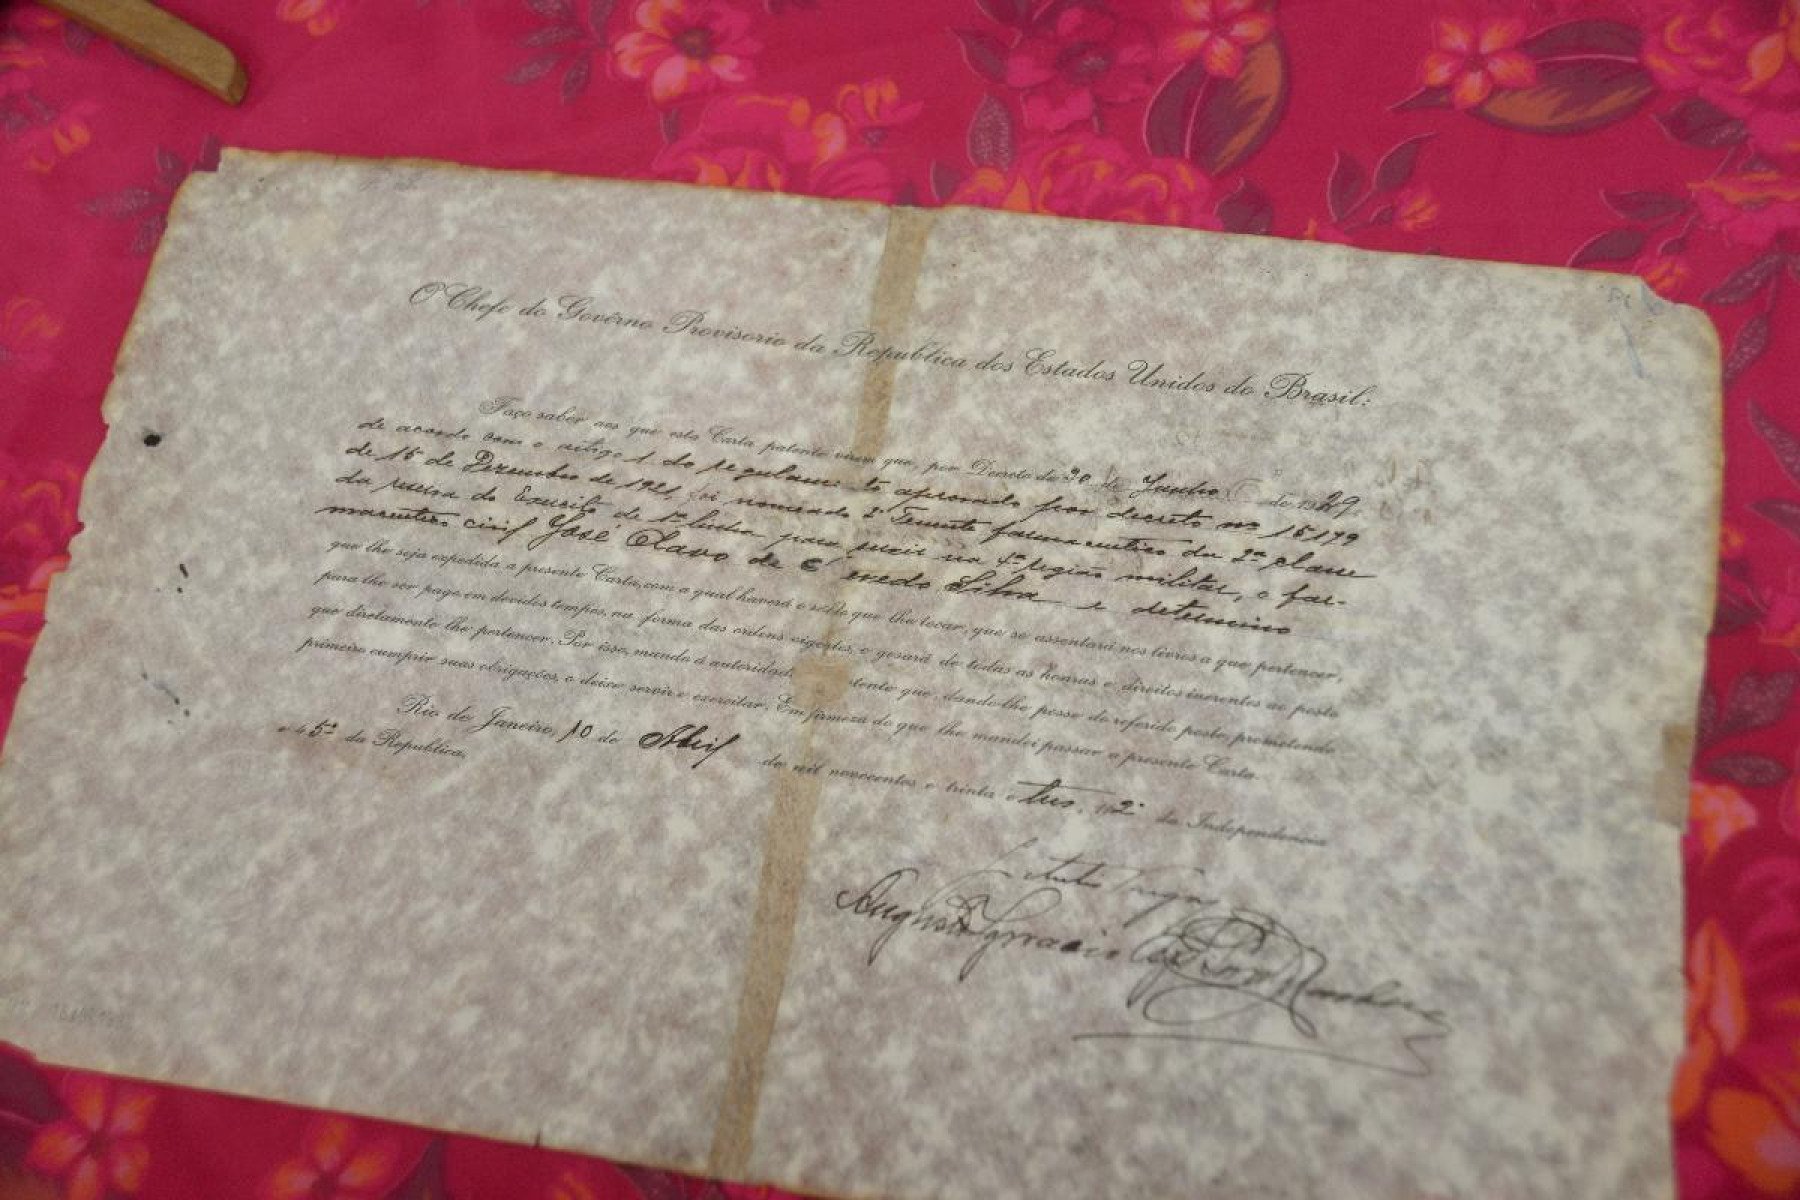 O Chefe do Govêrno Provisorio da Republica dos Estados Unidos do Brasil:
Faço saber aos que esta Carta patente virem que, por Decreto de 30 de Junho de 1929,
de acordo com o artigo 1 do regulamento aprovado por decreto nº 15.179
de 15 de Dezembro de 1921, foi nomeado 2º Tenente farmaceutico da 2ª classe
da reserva do Exercito de 1ª linha para servir na 4ª região militar, o far-
maceutico civil José Olavo de Silva e determino
que lhe seja expedida a presente Carta, com a qual haverá o soldo que lhe tocar, que se assentará nos livros a que pertencer,
para lhe ser pago em devidos tempos, na forma das ordens vigentes, e gosará de todas as honras e direitos inerentes ao posto
que diretamente lhe pertencer. Por isso, mando á autoridade tente que, dando-lhe posse do referido posto, prometendo
primeiro cumprir suas obrigações, o deixe servir e exercitar. Em firmeza do que lhe mandei passar a presente Carta.
Rio de Janeiro, 10 de Abril de mil novecentos e trinta e tres, 112º da Independencia
e 45º da Republica.
Augusto Ignacio